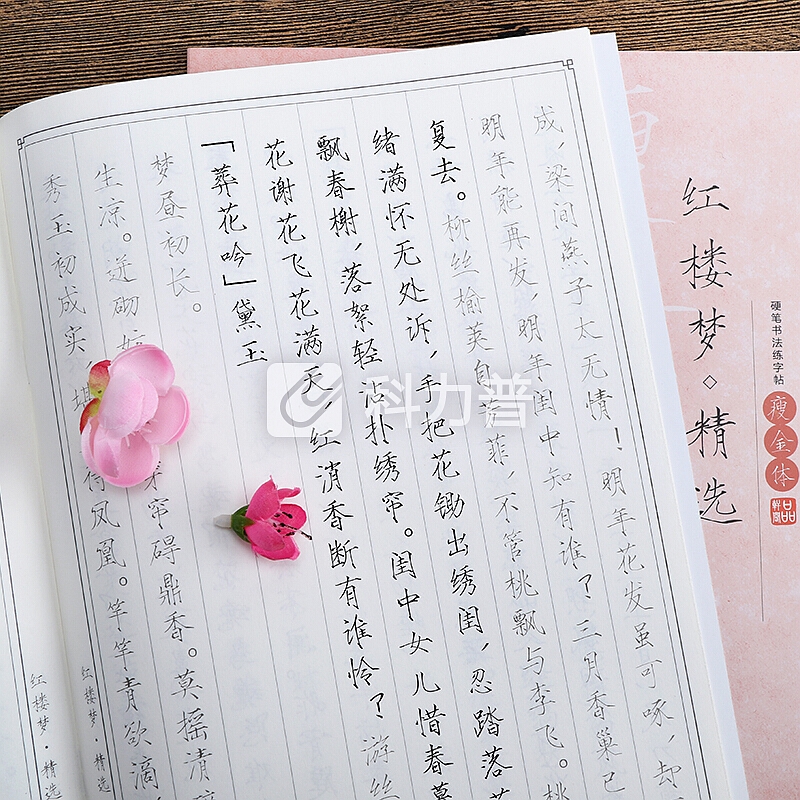 秀玉初成实 堪
凤凰。竿竿青欲滴
生凉。迸砌
帘碍鼎香。莫摇清
梦昼初长。
「葬花吟」黛玉
花谢花飞花满天，红消香断有谁怜？游丝
飘春榭，落絮轻沾扑绣帘。闺中女儿惜春暮
绪满怀无处诉，手把花锄出绣闺，忍踏落花
复去。柳丝榆荚自芳菲，不管桃飘与李飞。桃
明年能再发，明年闺中知有谁？三月香巢已
成，梁间燕子太无情！明年花发虽可啄，却
红楼梦·精选
红楼梦·精选
红楼梦◇精选
硬笔书法练字帖
瘦金体
科力普